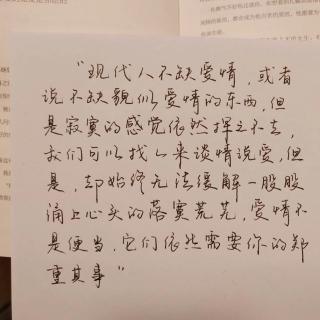 "现代人不缺爱情，或者
说不缺貌似爱情的东西，但
是寂寞的感觉依然挥之不去，
我们可以找人来谈情说爱，但
是，却始终无法缓解一股股
涌上心头的落寞荒芜，爱情不
是便当，它们依然需要你的郑
重其事"